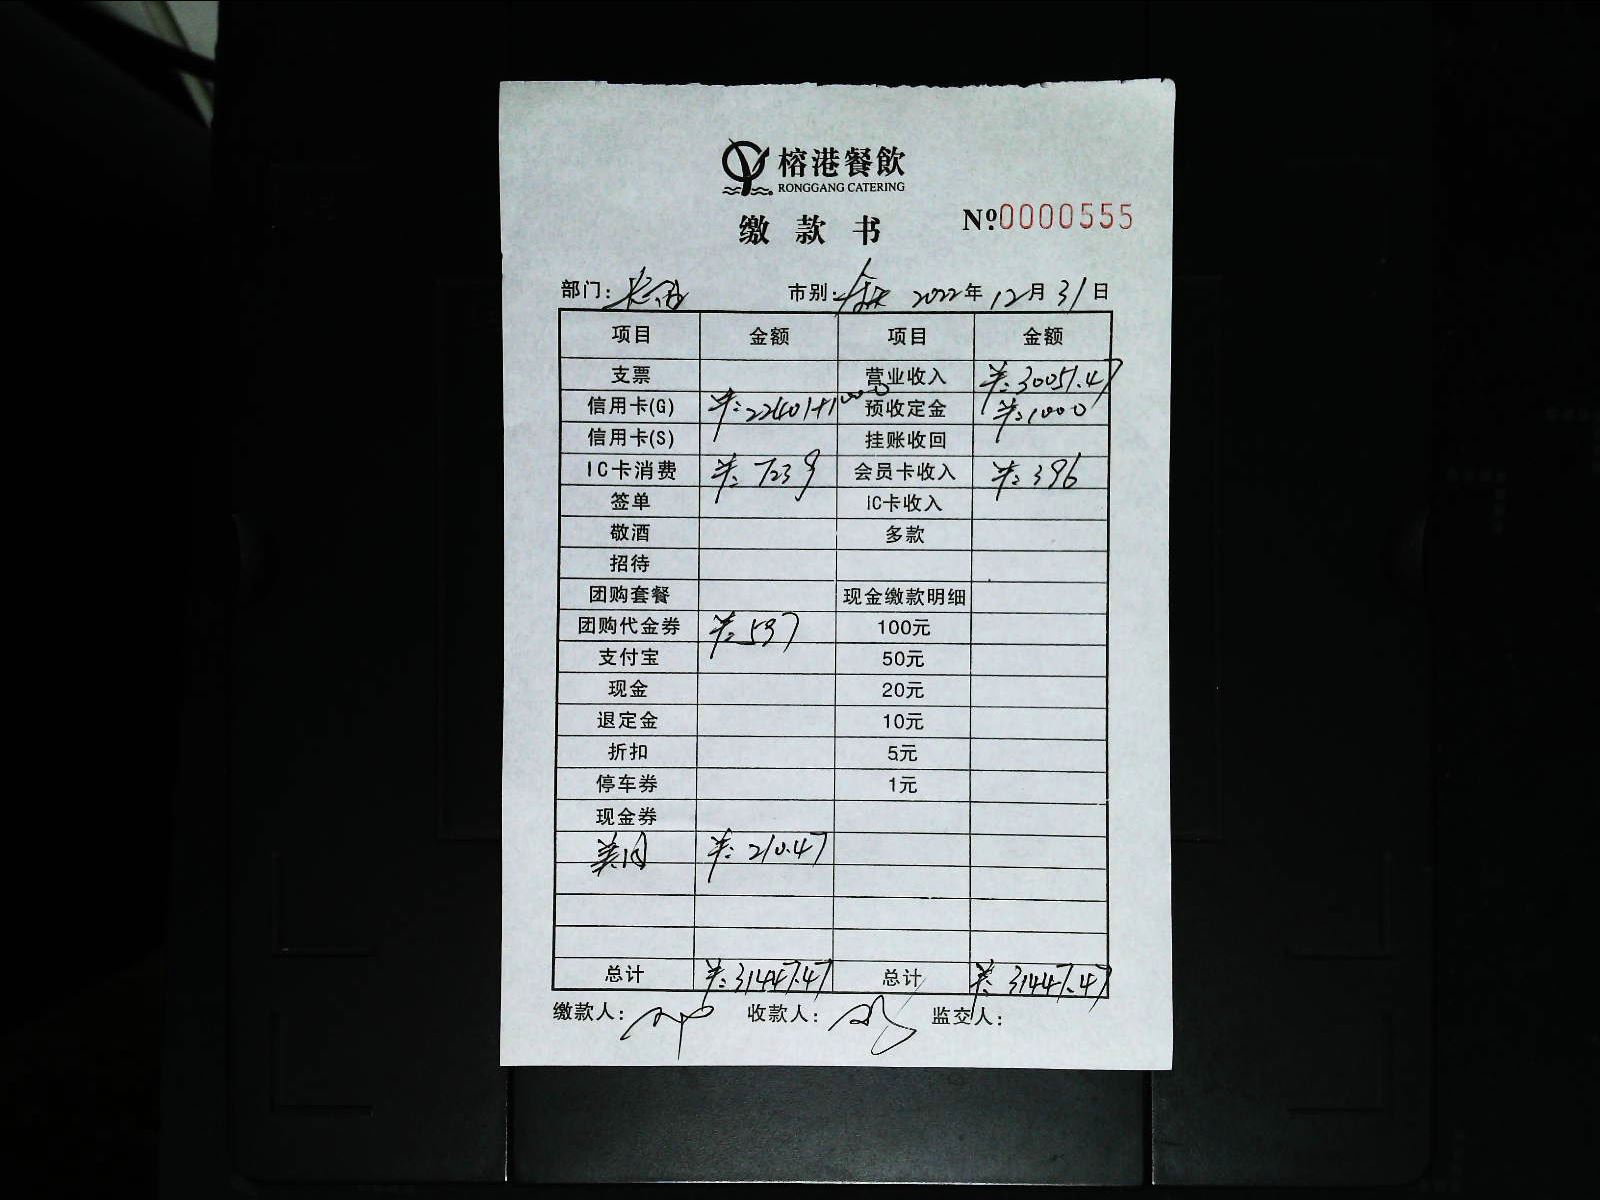 榕港餐飲
RONGGANG CATERING
缴款书 №0000555
部门: 市别: 2022年12月31日
项目 金额 项目 金额
支票 营业收入 ¥:30051.47
信用卡(G) ¥:22401+1000 预收定金 ¥:1000
信用卡(S) 挂账收回
IC卡消费 ¥:7239 会员卡收入 ¥:396
签单 IC卡收入
敬酒 多款
招待
团购套餐 现金缴款明细
团购代金券 ¥:597 100元
支付宝 50元
现金 20元
退定金 10元
折扣 5元
停车券 1元
现金券
美团 ¥:210.47
总计 ¥:31447.47 总计 ¥:31447.47
缴款人: 收款人: 监交人: